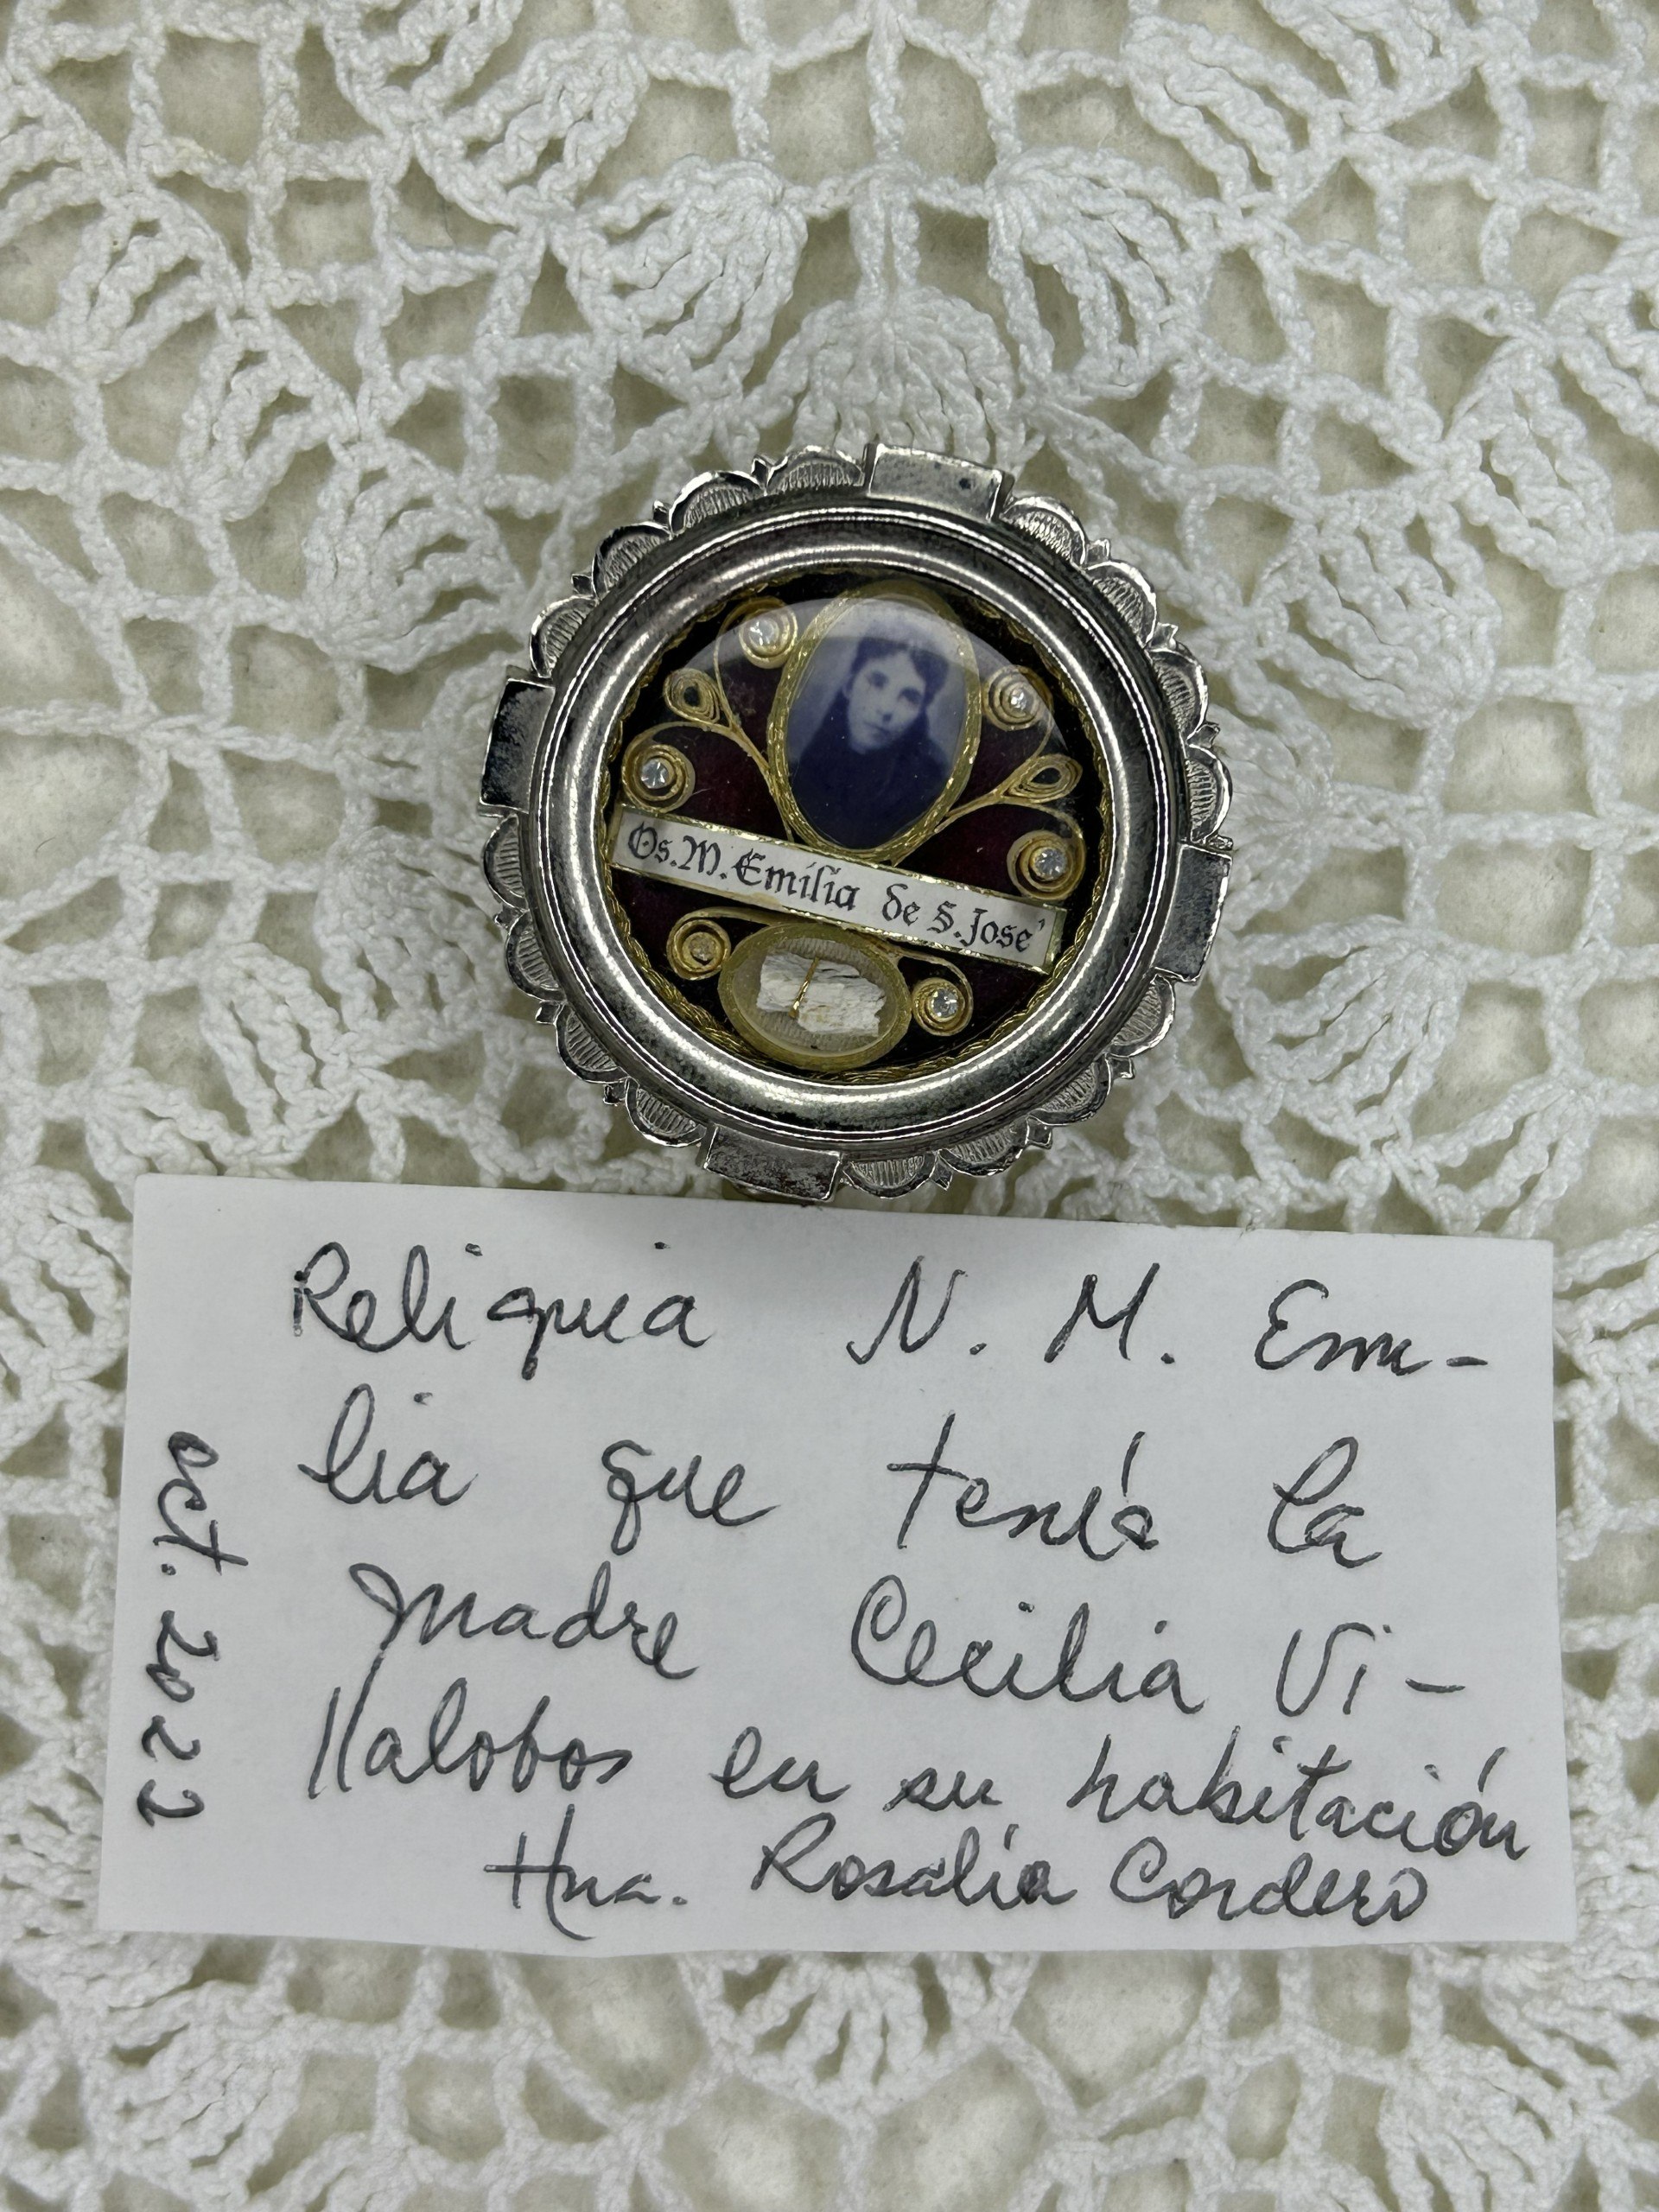 Os. M. Emilia de S. José
Reliquia N. M. Emi-
lia que tenía la
Madre Cecilia Vi-
llalobos en su habitación
Hna. Rosalía Cordero
oct. 2022